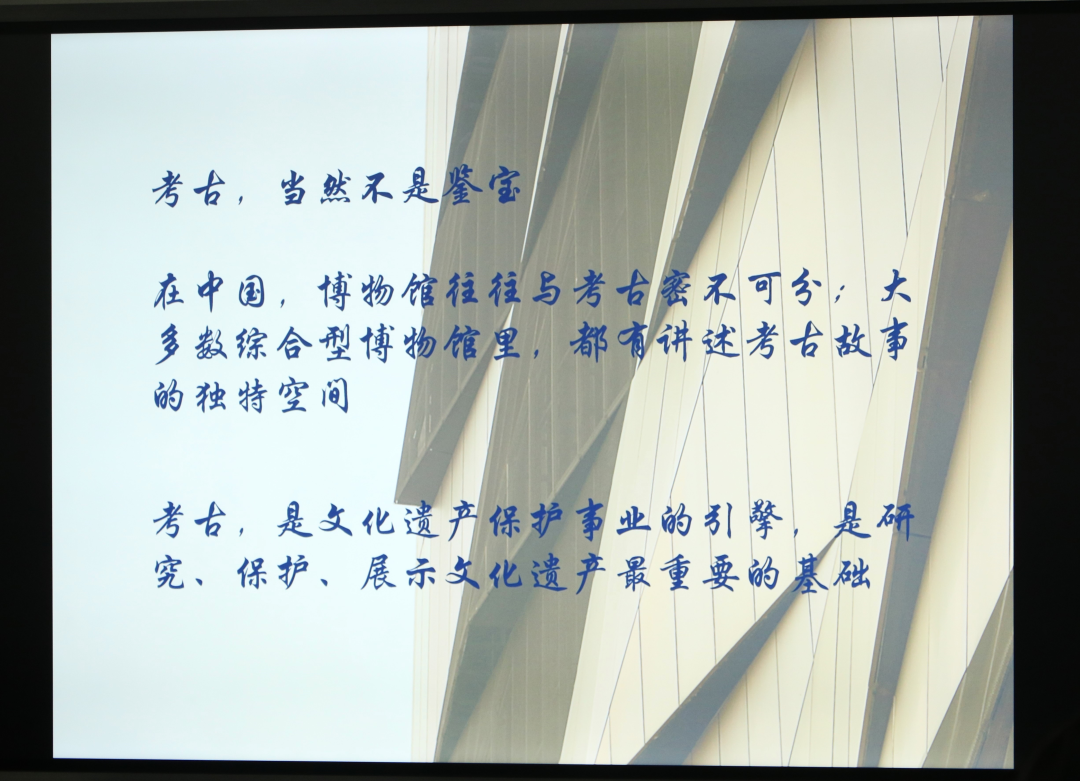 考古，当然不是鉴宝
在中国，博物馆往往与考古密不可分；大
多数综合型博物馆里，都有讲述考古故事
的独特空间
考古，是文化遗产保护事业的引擎，是研
究、保护、展示文化遗产最重要的基础